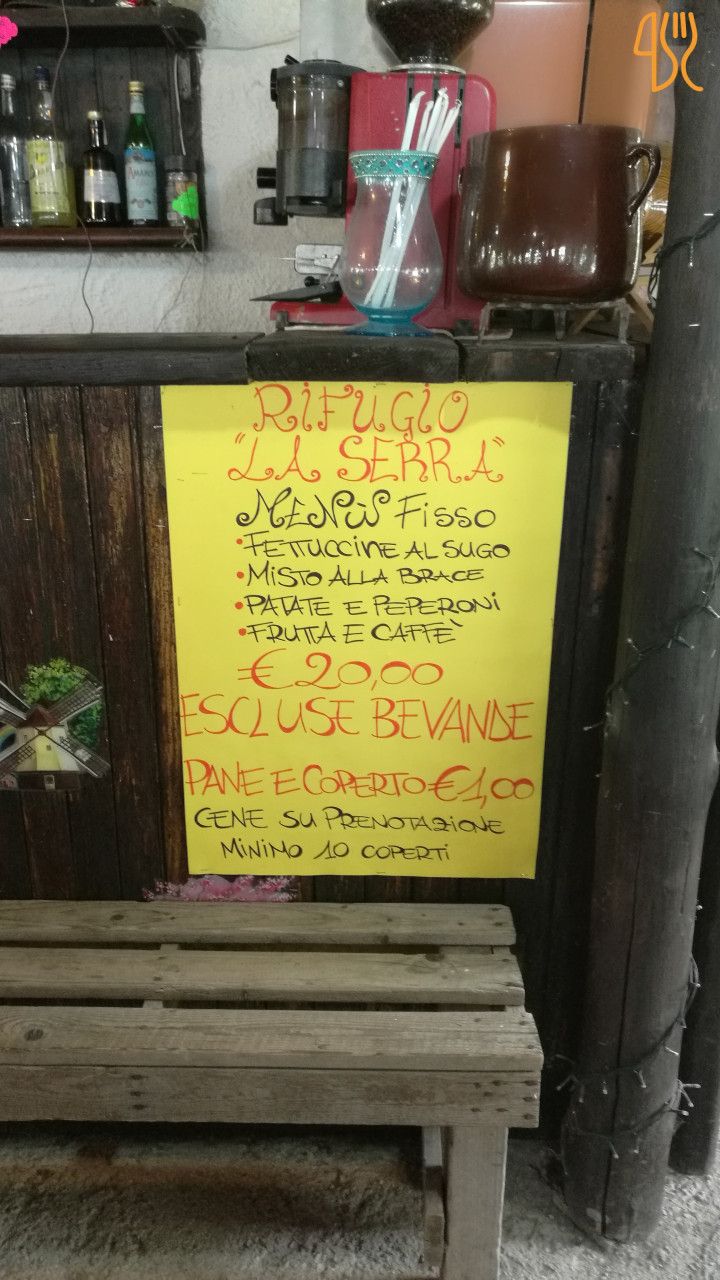 AMARO
RIFUGIO
"LA SERRA"
MENÙ FISSO
•FETTUCCINE AL SUGO
•MISTO ALLA BRACE
•PATATE E PEPERONI
•FRUTTA E CAFFÈ
€ 20,00
ESCLUSE BEVANDE
PANE E COPERTO € 1,00
CENE SU PRENOTAZIONE
MINIMO 10 COPERTI